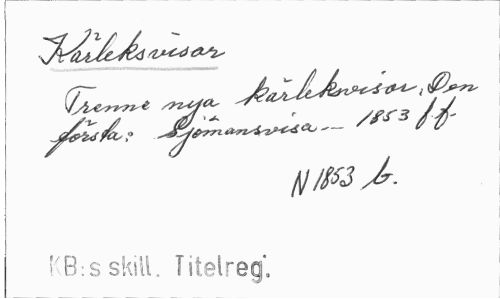 Kärleksvisor
Trenne nya kärleksvisor. Den
första: Sjömansvisa -- 1853 f.f.
N 1853 b.
KB:s skill. Titelreg.